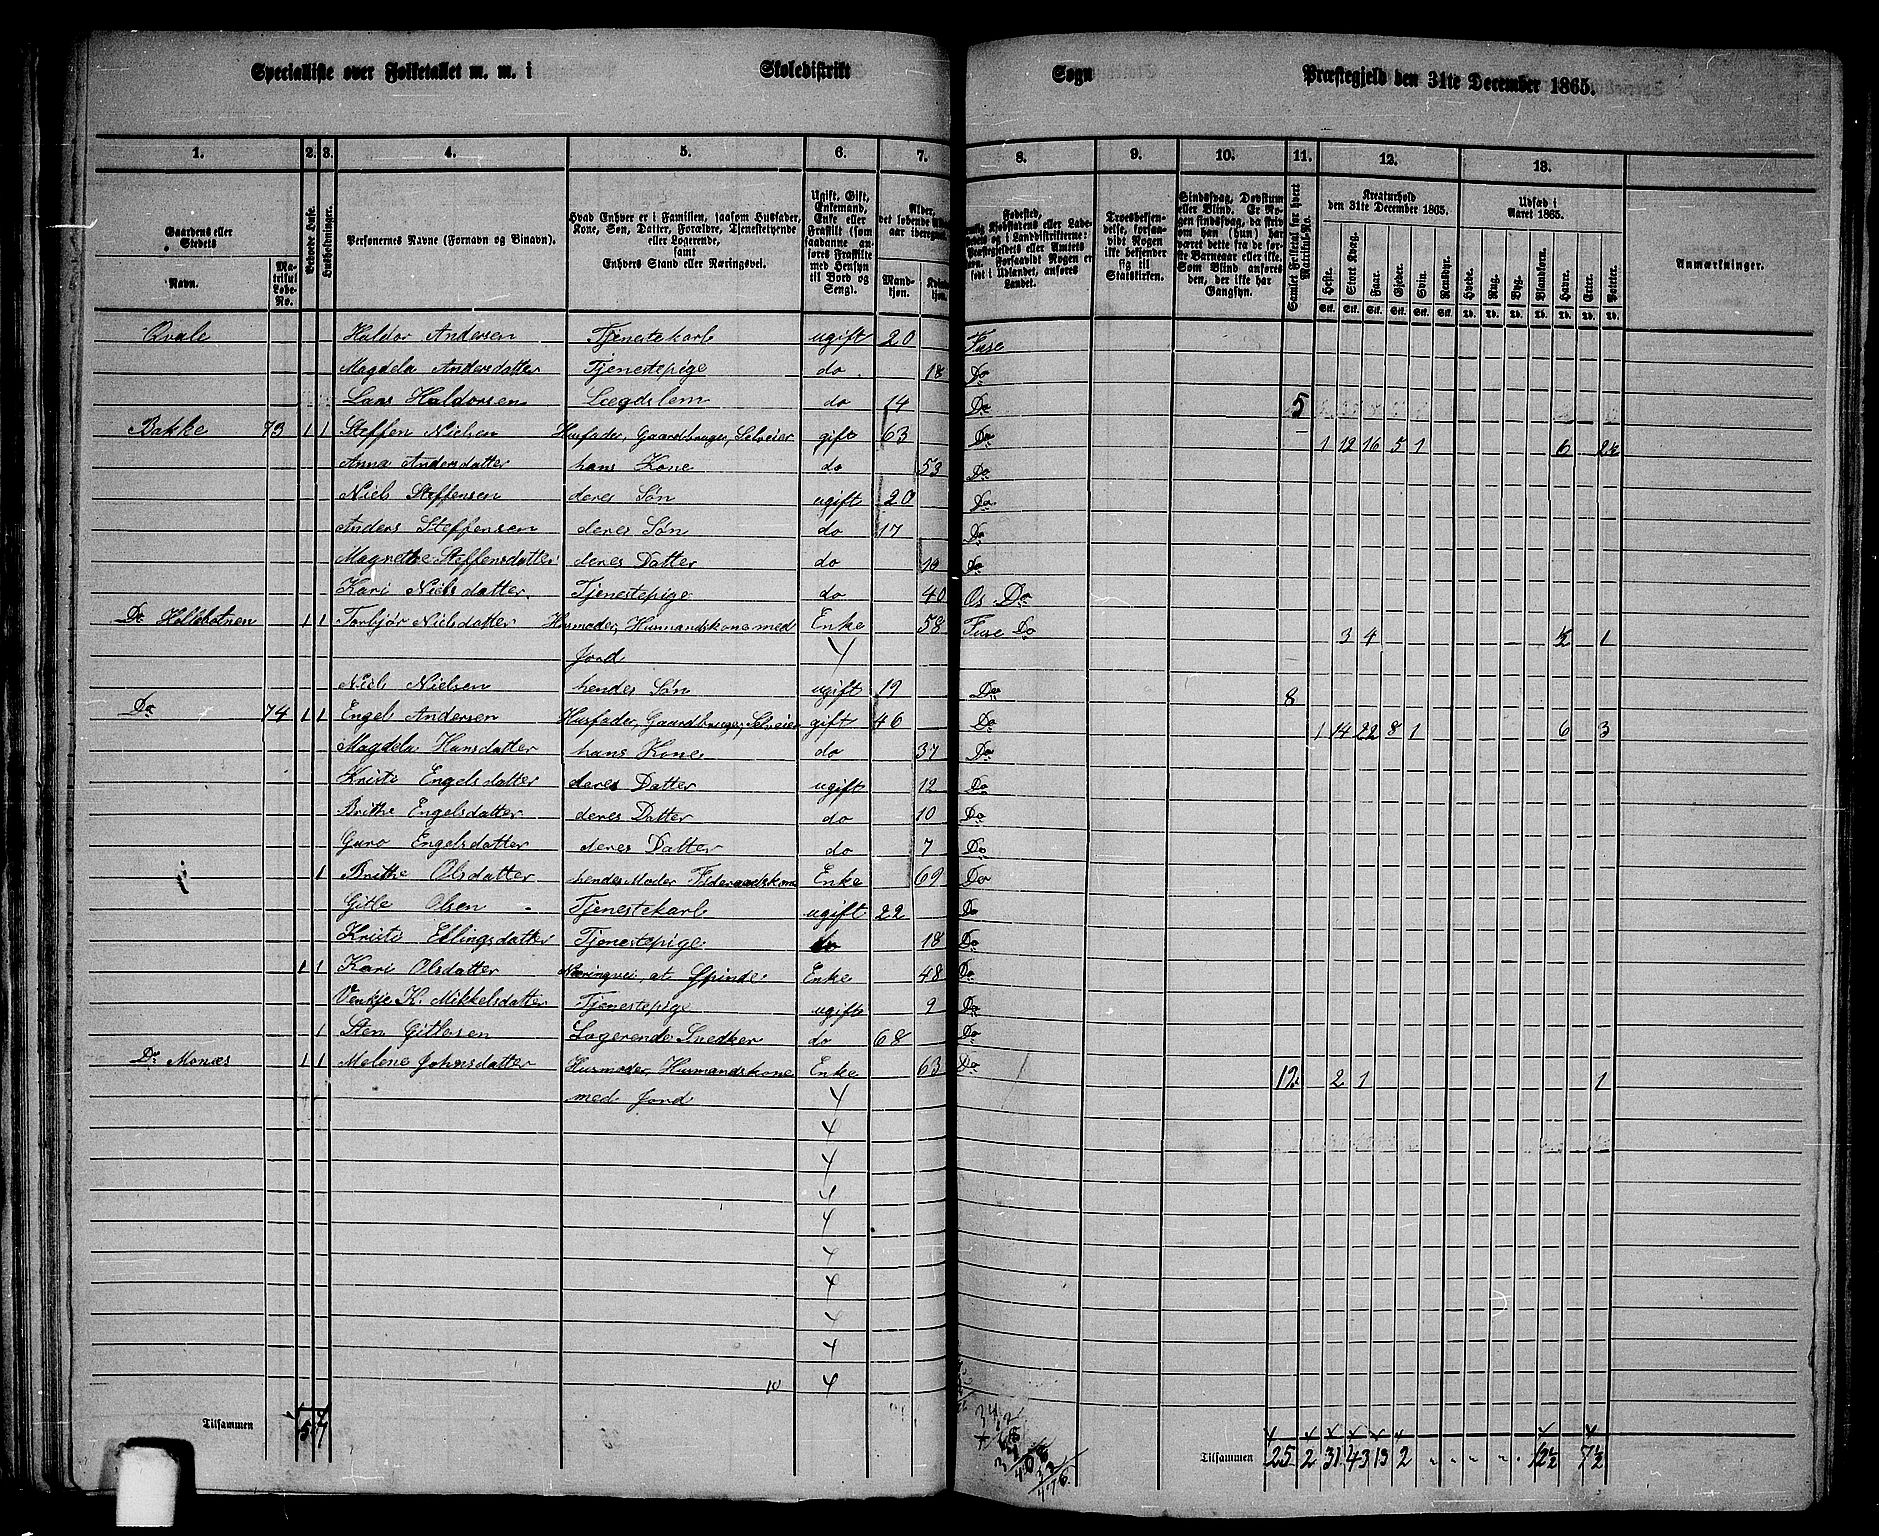 Specialliste over Folketallet m. m. i Skoledistrikt Sogn Præstegjeld den 31te December 1865.
1. 2. 3. 4. 5. 6. 7. 8. 9. 10. 11. 12. 13.
Gaardens eller Stedets
Navn.
Matrikul Løbe-No.
Beboede Huse.
Husholdninger.
Personernes Navne (Fornavn og Binavn).
Hvad Enhver er i Familien, saasom Husfader, Kone, Søn, Datter, Forældre, Tjenestetyende eller Logerende, samt Enhvers Stand eller Næringsvei.
Ugift, Gift, Enkemand, Enke eller Fraskilt (som saadanne anføres Fraskilte med Hensyn til Bord og Seng).
Alder, det løbende
Mandkjøn.
Troesbekjendelse, forsaavidt Nogen ikke bekjender sig til Statskirken.
Sindssvag, Døvstum eller Blind. Er Nogen sindssvag, da præ
Som Blind ansøres den, der ikke har Gangsyn.
Samlet Folketal for hvert Matrikul-No.
Kreaturhold den 31te December 1865.
Heste. Stort Kvæg. Faar. Gjeder. Svin. Rensdyr.
Udsæd i Aaret 1865.
Hvede. Rug. Byg. Blandkorn. Havre. Erter. Poteter.
Anmærkninger.
Qvale Haldor Andersen Tjenestekarl ugift 20 Fuse
Magdela Andersdatter Tjenestepige do 18 Do
Lars Haldorsen Lægdslem do 14 Do 5
Bakke 73 1 1 Steffen Nielsen Husfader, Gaardbruger, Selveier gift 63 Do 1 12 16 5 1 6 2½
Anna Andersdatter hans Kone do 53 Do
Niels Steffensen deres Søn ugift 20 Do
Anders Steffensen deres Søn do 17 Do
Magnethe Steffensdatter deres Datter do 10 Do
Kari Nielsdatter Tjenestepige do 40 Os Do
Do Hollebotnen 1 1 Torbjør Nielsdatter Husmoder, Husmandskone med Enke 58 Fuse Do 3 4 ½ 1
Jord
Niels Nielsen hendes Søn ugift 19 Do 8
Do 74 1 1 Engel Andersen Husfader, Gaardbruger, Selveier gift 46 Do 1 14 22 8 1 6 3
Magdela Hansdatter hans Kone do 37 Do
Kriste Engelsdatter deres Datter ugift 12 Do
Brithe Engelsdatter deres Datter do 10 Do
Guro Engelsdatter deres Datter do 7 Do
1 Brithe Olsdatter hendes Moder Føderaadskone Enke 69 Do
Gitle Olsen Tjenestekarl ugift 22 Do
Kriste Ellingsdatter Tjenestepige do 18 Do
1 1 Kari Olsdatter Næringvei at Spinde Enke 48 Do
Venkje K. Mikkelsdatter Tjenestepige ugift 9 Do
1 Sten Gitlesen Logerende Snedker do 68 Do
Do Monæs 1 1 Malene Johnsdatter Husmoder, Husmandskone Enke 63 Do 12 2 1 1
med Jord
Tilsammen 5 7 Tilsammen 25 2 31 43 13 2 12½ 7½